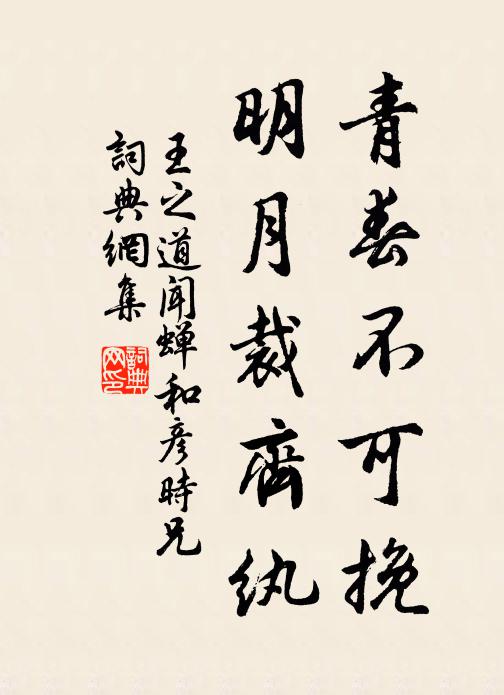 青春不可挽
明月裁齊紈
王之道聞蟬和彥時兄
詞典網集
詞典网印